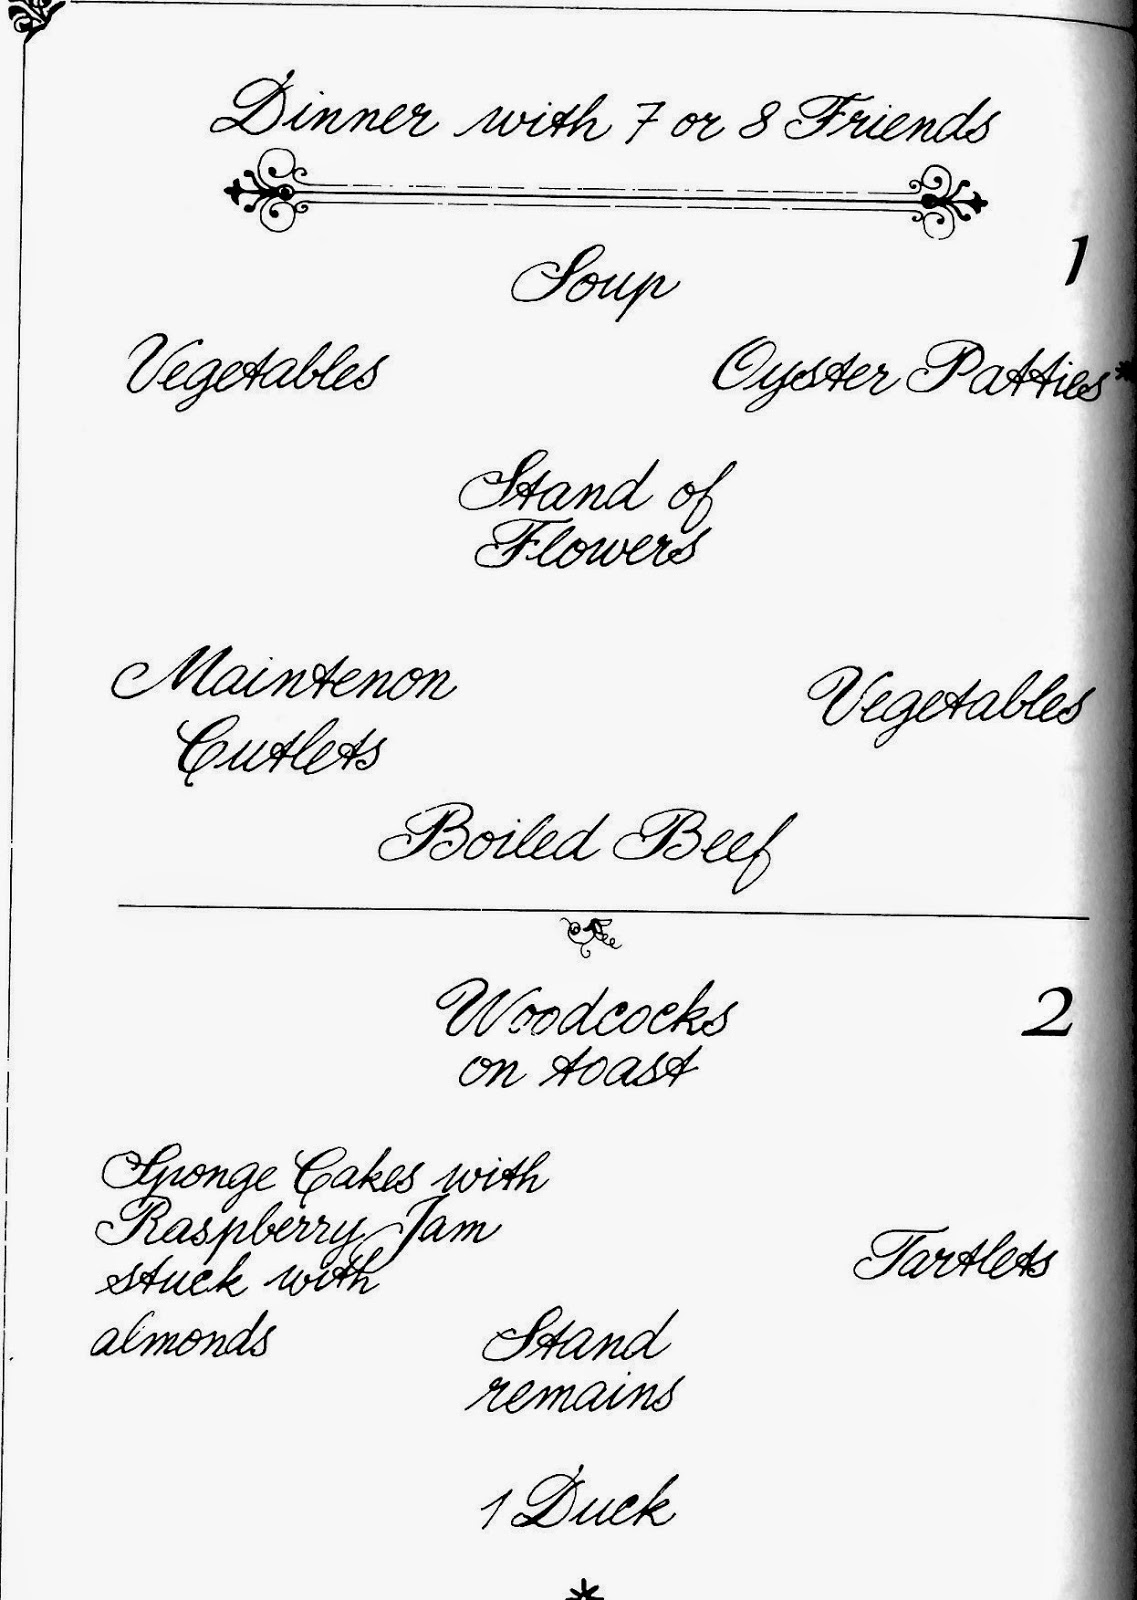 Dinner with 7 or 8 Friends
1
Soup
Vegetables
Oyster Patties*
Stand of
Flowers
Maintenon
Cutlets
Vegetables
Boiled Beef
2
Woodcocks
on toast
Sponge Cakes with
Raspberry Jam
stuck with
almonds
Tartlets
Stand
remains
1 Duck
*